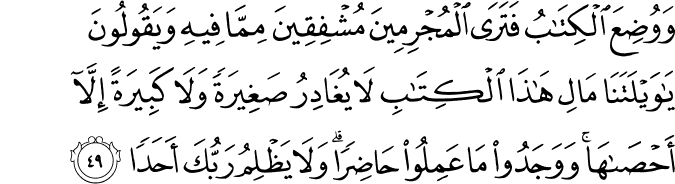 وَوُضِعَ ٱلْكِتَٰبُ فَتَرَى ٱلْمُجْرِمِينَ مُشْفِقِينَ مِمَّا فِيهِ وَيَقُولُونَ
يَٰوَيْلَتَنَا مَالِ هَٰذَا ٱلْكِتَٰبِ لَا يُغَادِرُ صَغِيرَةً وَلَا كَبِيرَةً إِلَّآ
أَحْصَىٰهَا ۚ وَوَجَدُوا۟ مَا عَمِلُوا۟ حَاضِرًا ۗ وَلَا يَظْلِمُ رَبُّكَ أَحَدًا ٤٩